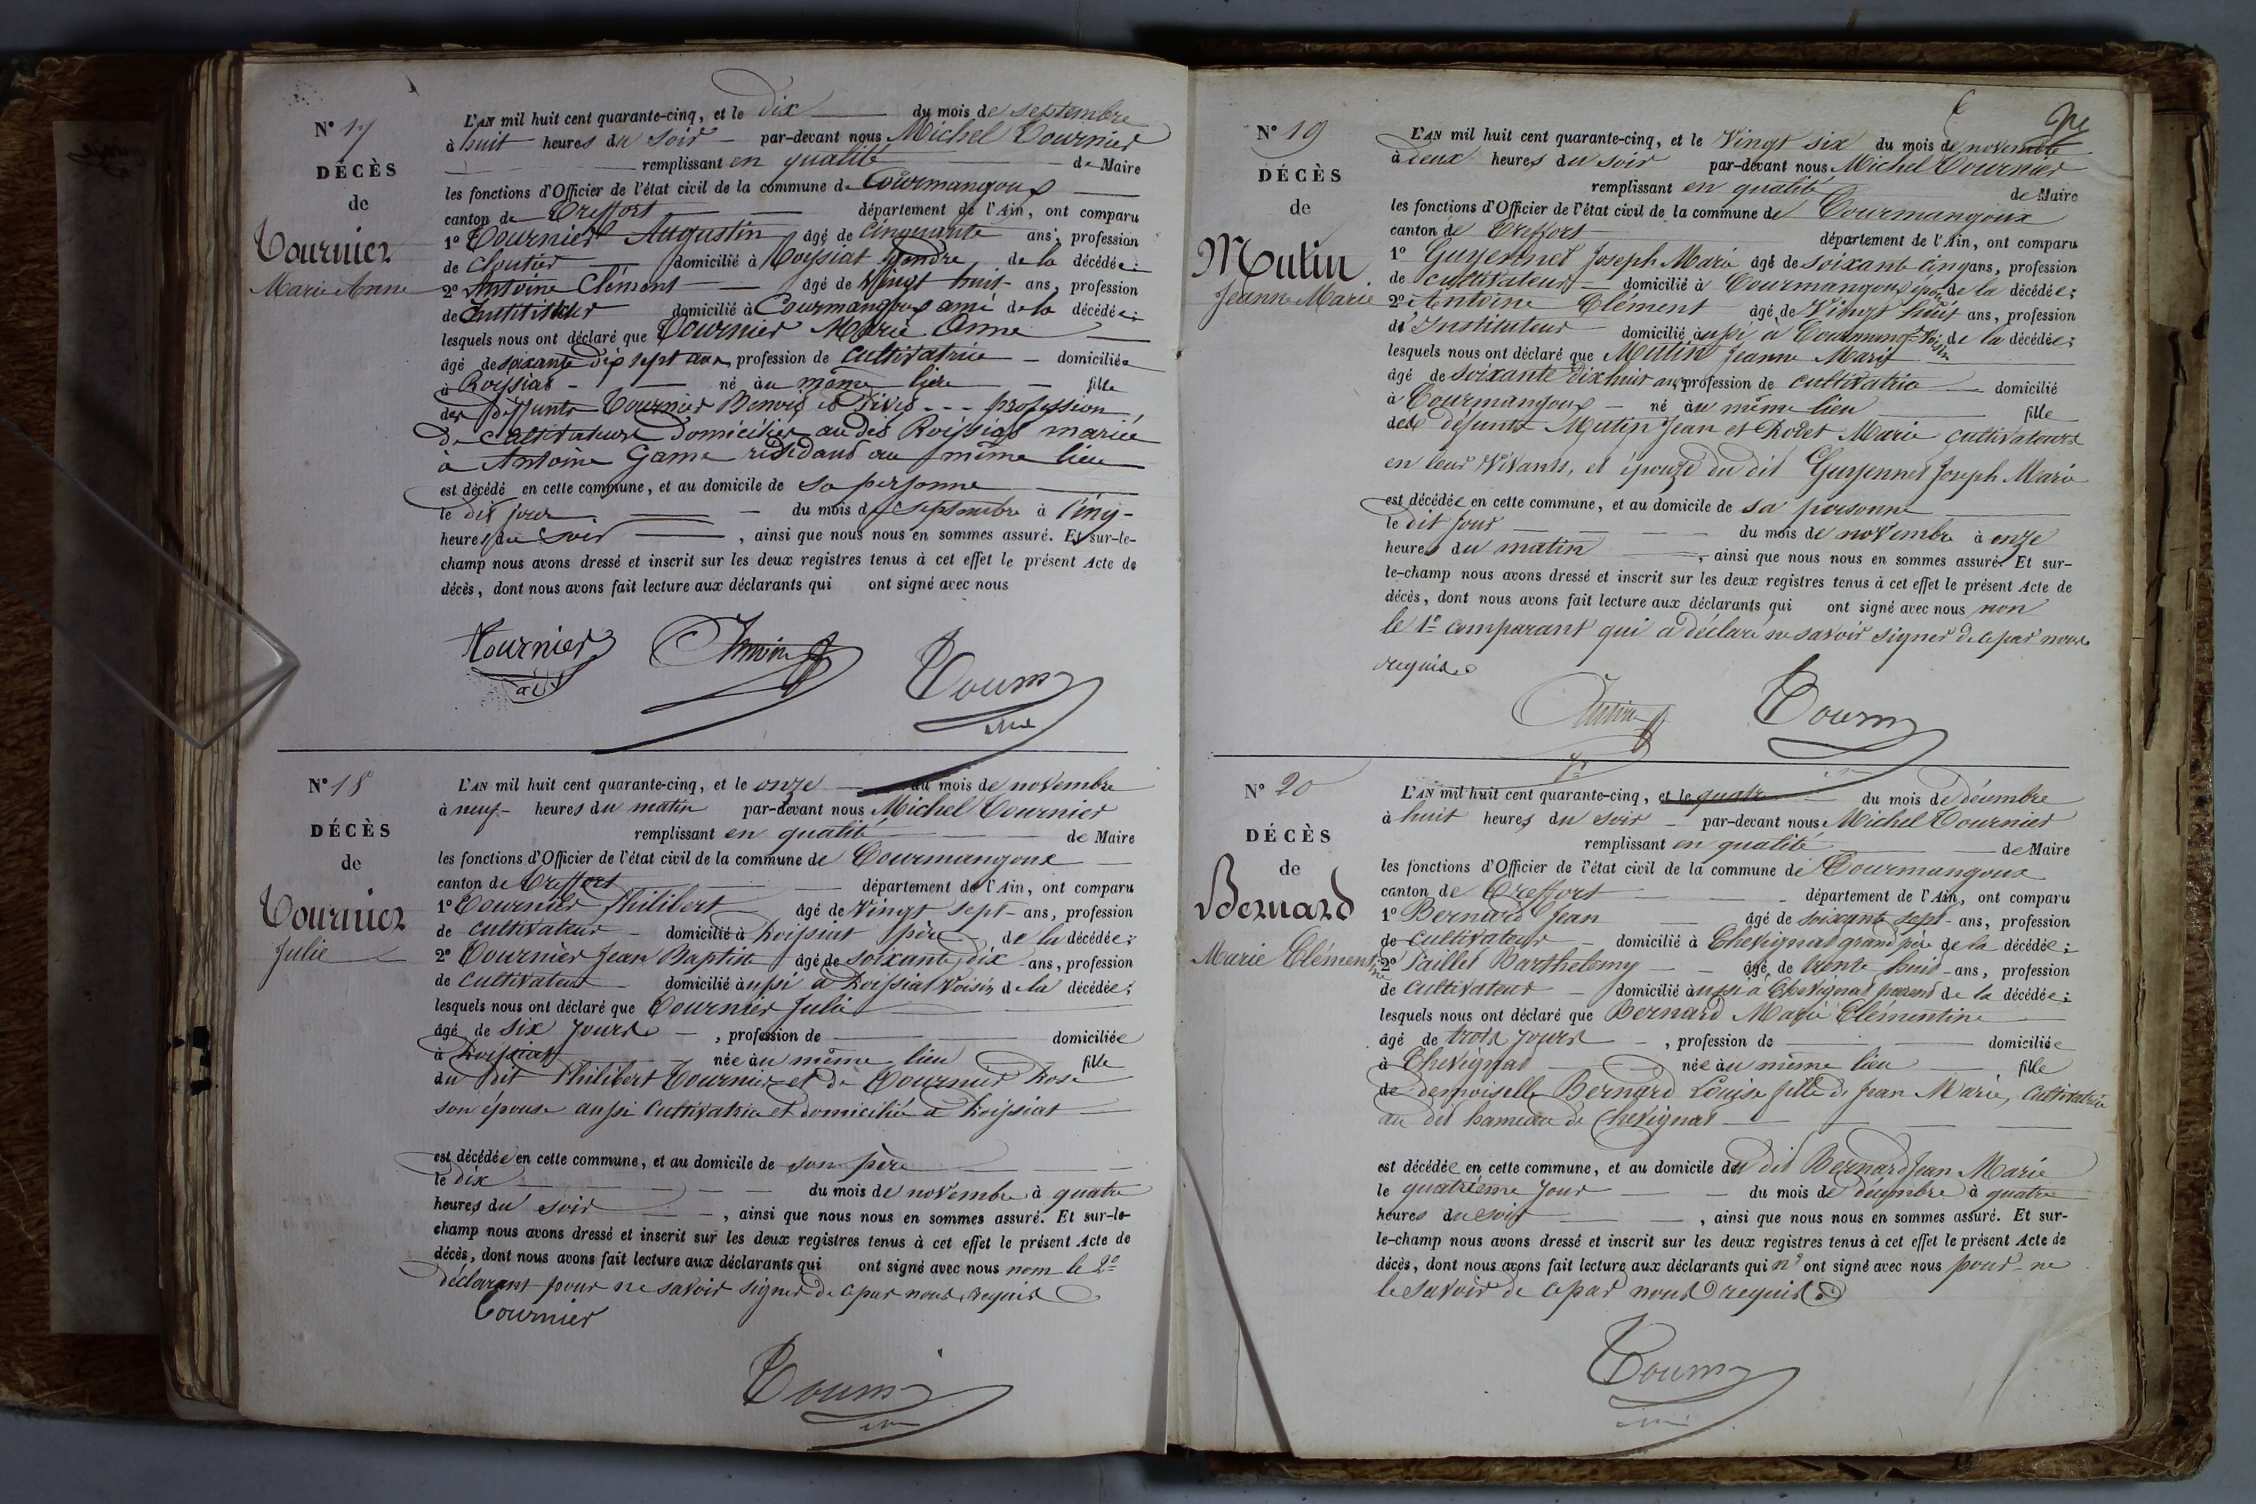 N° 17
DÉCÈS
de
Tournier
Marie Anne
L'AN mil huit cent quarante-cinq, et le dix du mois de septembre
à huit heures du soir par-devant nous Michel Tournier
remplissant en qualité de Maire
les fonctions d'Officier de l'état civil de la commune de Courmangoux
canton de Treffort département de l'Ain, ont comparu
1° Tournier Augustin âgé de cinquante ans, profession
de cloutier domicilié à Roissiat gendre de la décédée;
2° Antoine Clément âgé de Vingt huit ans, profession
de Instituteur domicilié à Courmangoux ami de la décédée;
lesquels nous ont déclaré que Tournier Marie Anne
âgé de soixante dix sept ans, profession de cultivatrice domiciliée
à Roissiat né au même lieu fille
des défunts Tournier Benoit et profession
de cultivateurs domiciliés au dit Roissiat mariée
à Antoine Game résidant au même lieu
est décédé en cette commune, et au domicile de sa personne
le dit jour du mois de septembre à cinq
heures du soir, ainsi que nous nous en sommes assuré. Et sur-le-
champ nous avons dressé et inscrit sur les deux registres tenus à cet effet le présent Acte de
décès, dont nous avons fait lecture aux déclarants qui ont signé avec nous
Tournier Antoine Tournier
N° 18
DÉCÈS
de
Tournier
Julie
L'AN mil huit cent quarante-cinq, et le onze du mois de novembre
à neuf heures du matin par-devant nous Michel Tournier
remplissant en qualité de Maire
les fonctions d'Officier de l'état civil de la commune de Courmangoux
canton de Treffort département de l'Ain, ont comparu
1° Tournier Philibert âgé de Vingt sept ans, profession
de cultivateur domicilié à Roissiat père de la décédée;
2° Tournier Jean Baptiste âgé de soixante dix ans, profession
de cultivateur domicilié aussi à Roissiat Voisin de la décédée;
lesquels nous ont déclaré que Tournier Julie
âgé de six jours, profession de domiciliée
à Roissiat née au même lieu fille
du dit Philibert Tournier et de Tournier Rose
son épouse aussi cultivatrice et domiciliée à Roissiat
est décédée en cette commune, et au domicile de son père
le dix du mois de novembre à quatre
heures du soir, ainsi que nous nous en sommes assuré. Et sur-le-
champ nous avons dressé et inscrit sur les deux registres tenus à cet effet le présent Acte de
décès, dont nous avons fait lecture aux déclarants qui ont signé avec nous nom le 2e
déclarant pour ne savoir signer de ce par nous requis
Tournier
Tournier
N° 19
DÉCÈS
de
Mutin
Jeanne Marie
L'AN mil huit cent quarante-cinq, et le Vingt six du mois de novembre
à deux heures du soir par-devant nous Michel Tournier
remplissant en qualité de Maire
les fonctions d'Officier de l'état civil de la commune de Courmangoux
canton de Treffort département de l'Ain, ont comparu
1° Guyennet Joseph Marie âgé de soixante cinq ans, profession
de cultivateur domicilié à Courmangoux époux de la décédée;
2° Antoine Clément âgé de Vingt huit ans, profession
de Instituteur domicilié aussi à Courmangx Voisin de la décédée;
lesquels nous ont déclaré que Mutin Jeanne Marie
âgé de soixante dixhuit ans profession de cultivatrice domicilié
à Courmangoux né au même lieu fille
des défunts Mutin Jean et Rodet Marie cultivateurs
en leur Vivants, et épouse du dit Guyennet Joseph Marie
est décédée en cette commune, et au domicile de sa personne
le dit jour du mois de novembre à onze
heures du matin, ainsi que nous nous en sommes assuré. Et sur-
le-champ nous avons dressé et inscrit sur les deux registres tenus à cet effet le présent Acte de
décès, dont nous avons fait lecture aux déclarants qui ont signé avec nous non
le 1er comparant qui a déclaré ne savoir signer de ce par nous
requis
Antoine Tournier
N° 20
DÉCÈS
de
Bernard
Marie Clémentine
L'AN mil huit cent quarante-cinq, et le quatre du mois de décembre
à huit heures du soir par-devant nous Michel Tournier
remplissant en qualité de Maire
les fonctions d'Officier de l'état civil de la commune de Courmangoux
canton de Treffort département de l'Ain, ont comparu
1° Bernard Jean âgé de soixante sept ans, profession
de cultivateur domicilié à Chevignat grand père de la décédée;
2° Paillet Barthelemy âgé de trente huit ans, profession
de cultivateur domicilié aussi à Chevignat parent de la décédée;
lesquels nous ont déclaré que Bernard Marie Clementine
âgé de trois jours, profession de domiciliée
à Chevignat née au même lieu fille
de demoiselle Bernard Louise fille de Jean Marie, cultivatrice
au dit hameau de Chevignat
est décédée en cette commune, et au domicile du dit Bernard Jean Marie
le quatrième jour du mois de décembre à quatre
heures du soir, ainsi que nous nous en sommes assuré. Et sur-
le-champ nous avons dressé et inscrit sur les deux registres tenus à cet effet le présent Acte de
décès, dont nous avons fait lecture aux déclarants qui n' ont signé avec nous pour ne
le savoir de ce par nous requis
Tournier